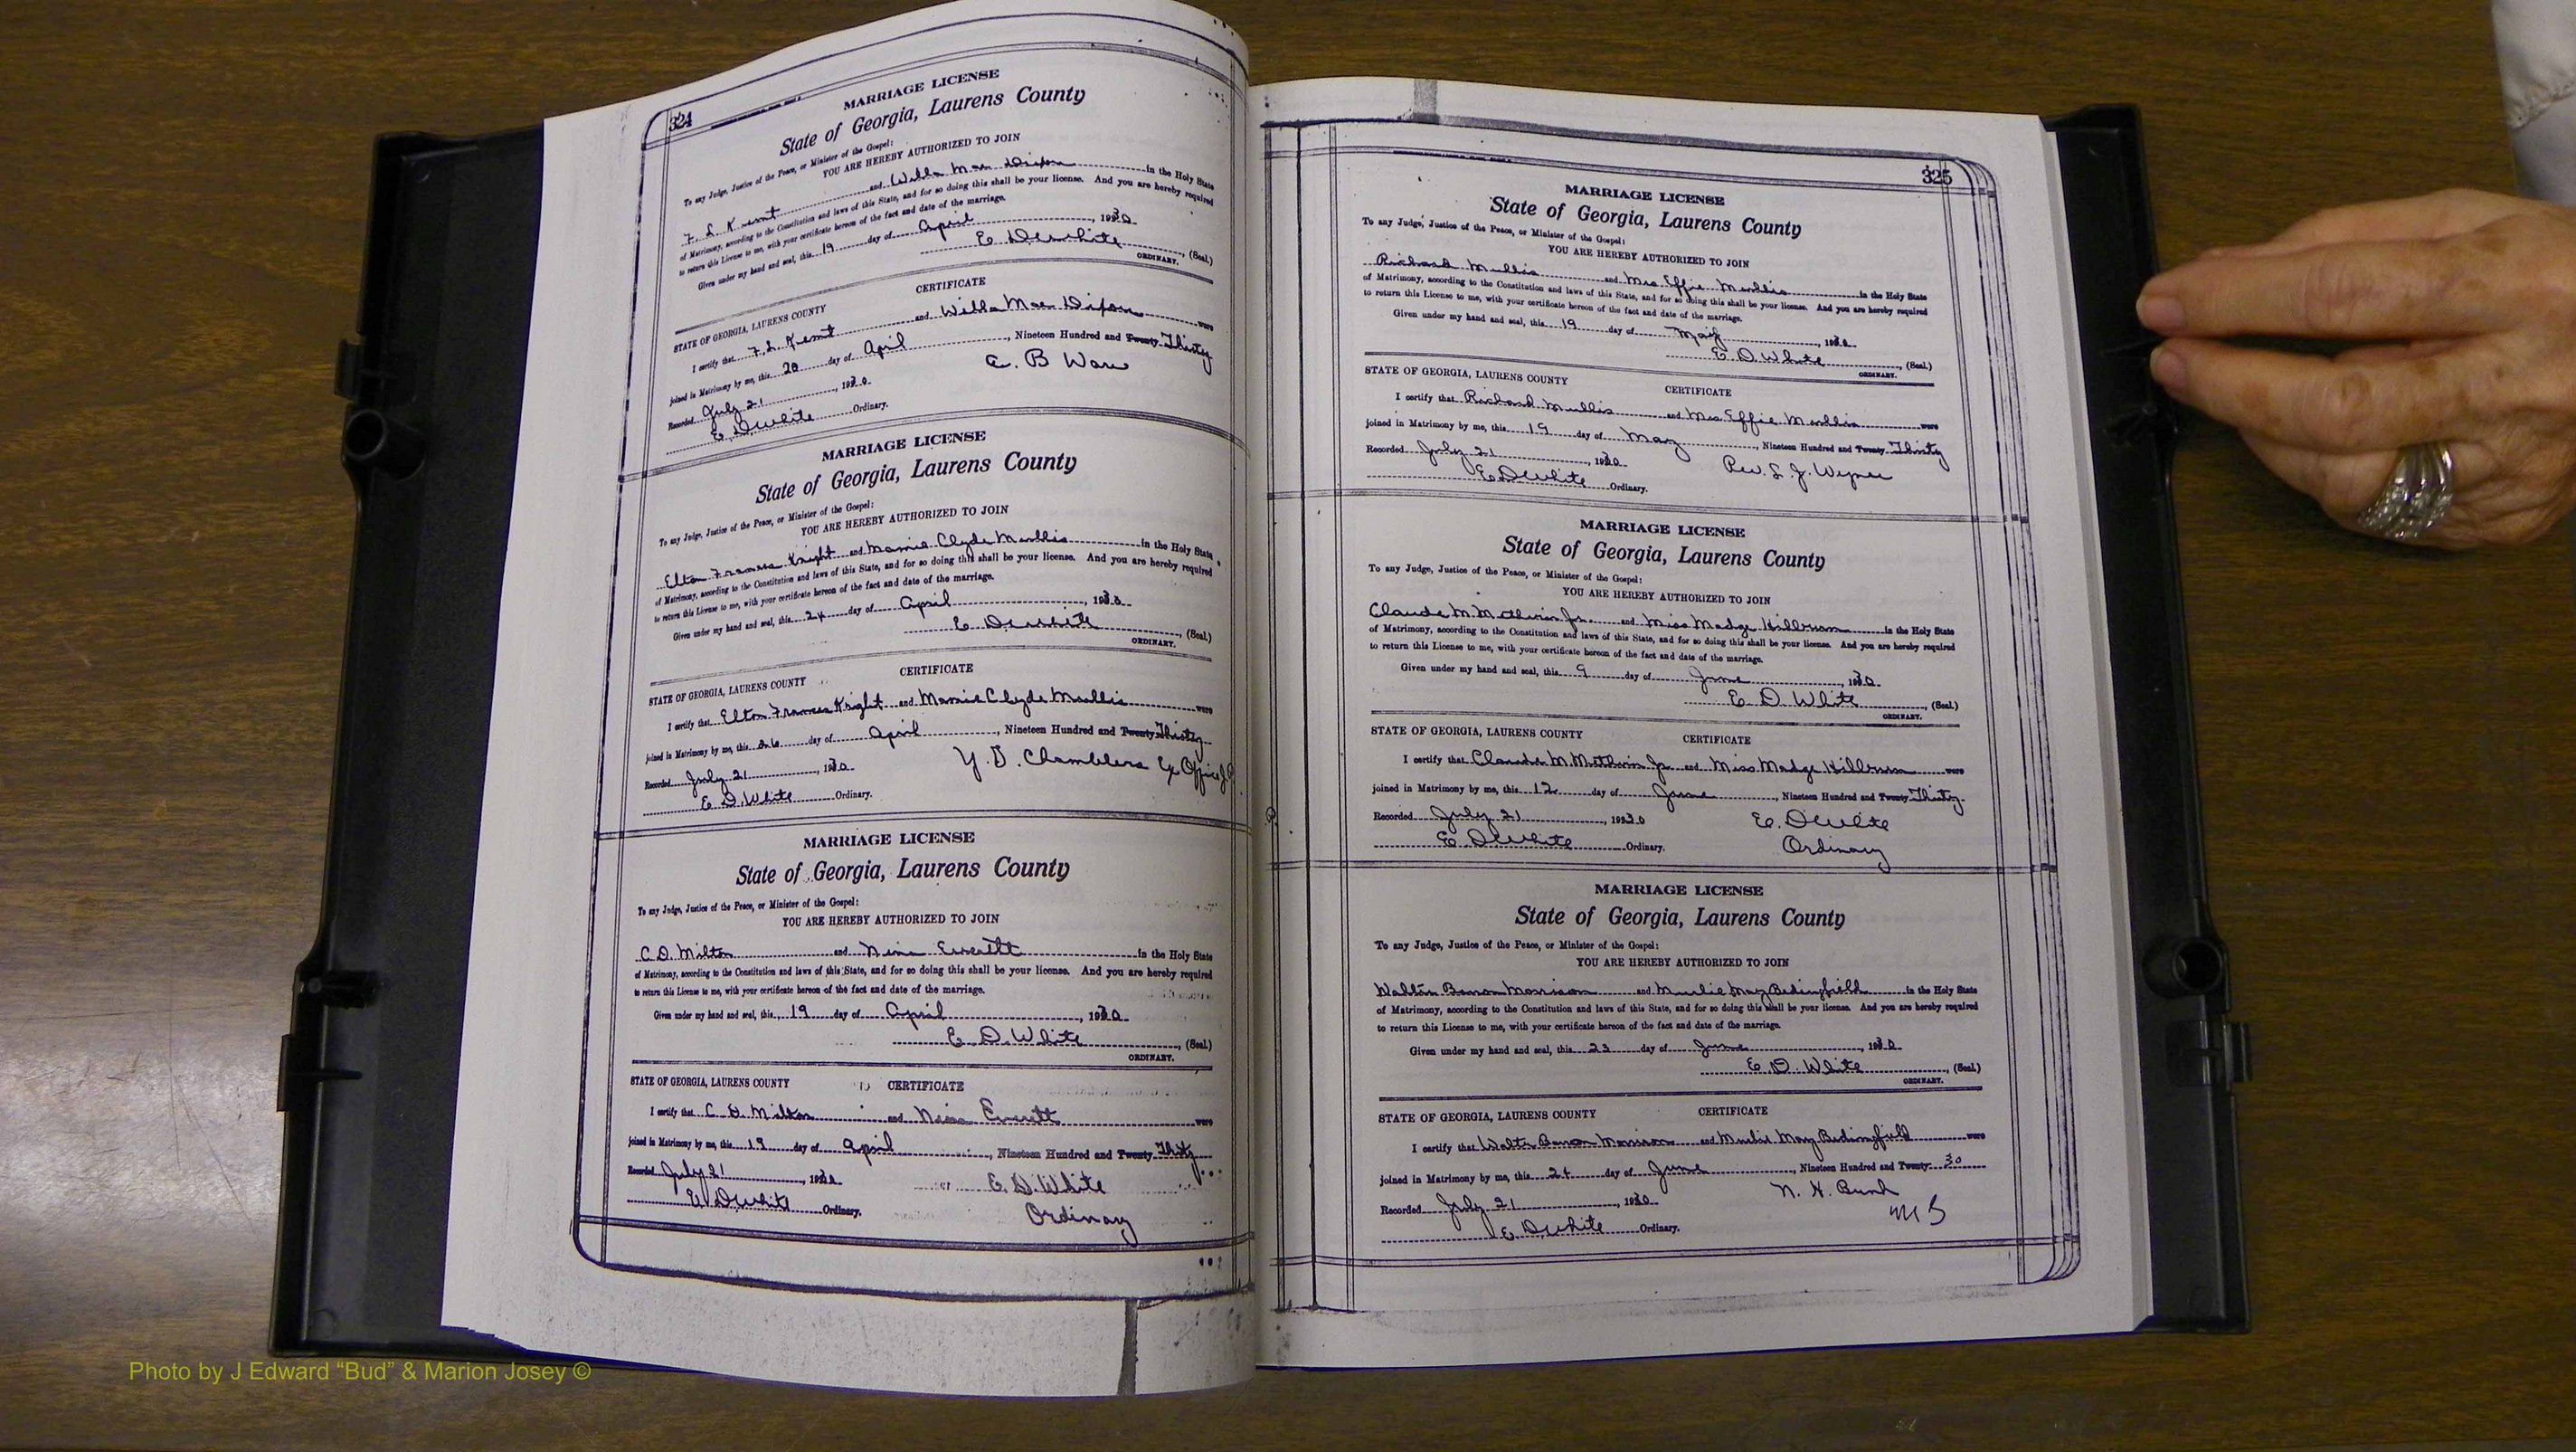 324
MARRIAGE LICENSE
State of Georgia, Laurens County
To any Judge, Justice of the Peace, or Minister of the Gospel:
YOU ARE HEREBY AUTHORIZED TO JOIN
F. L. Kemt and Willa Mae Dixon in the Holy State
of Matrimony, according to the Constitution and laws of this State, and for so doing this shall be your license. And you are hereby required
to return this License to me, with your certificate hereon of the fact and date of the marriage.
Given under my hand and seal, this 19 day of April, 1930
E D White, (Seal.)
ORDINARY.
CERTIFICATE
STATE OF GEORGIA, LAURENS COUNTY
I certify that F. L. Kemt and Willa Mae Dixon were
joined in Matrimony by me, this 20 day of April, Nineteen Hundred and Twenty Thirty
Recorded July 21, 1930. E. B Ware
E D White Ordinary.
MARRIAGE LICENSE
State of Georgia, Laurens County
To any Judge, Justice of the Peace, or Minister of the Gospel:
YOU ARE HEREBY AUTHORIZED TO JOIN
Elton Frances Knight and Mamie Clyde Mullis in the Holy State
of Matrimony, according to the Constitution and laws of this State, and for so doing this shall be your license. And you are hereby required
to return this License to me, with your certificate hereon of the fact and date of the marriage.
Given under my hand and seal, this 24 day of April, 1930
E D White, (Seal.)
ORDINARY.
CERTIFICATE
STATE OF GEORGIA, LAURENS COUNTY
I certify that Elton Frances Knight and Mamie Clyde Mullis were
joined in Matrimony by me, this 26 day of April, Nineteen Hundred and Twenty Thirty
Recorded July 21, 1930 Y. D. Chamblers Ex Office J.P.
E D. White Ordinary.
MARRIAGE LICENSE
State of Georgia, Laurens County
To any Judge, Justice of the Peace, or Minister of the Gospel:
YOU ARE HEREBY AUTHORIZED TO JOIN
C D. Milton and Nina Everett in the Holy State
of Matrimony, according to the Constitution and laws of this State, and for so doing this shall be your license. And you are hereby required
to return this License to me, with your certificate hereon of the fact and date of the marriage.
Given under my hand and seal, this 19 day of April, 1930
E. D. White, (Seal.)
ORDINARY.
STATE OF GEORGIA, LAURENS COUNTY CERTIFICATE
I certify that C D. Milton and Nina Everett were
joined in Matrimony by me, this 19 day of April, Nineteen Hundred and Twenty Thirty
Recorded July 21, 1930 E. D. White
E D White Ordinary. Ordinary
325
MARRIAGE LICENSE
State of Georgia, Laurens County
To any Judge, Justice of the Peace, or Minister of the Gospel:
YOU ARE HEREBY AUTHORIZED TO JOIN
Richard Mullis and Mrs Effie Mullis in the Holy State
of Matrimony, according to the Constitution and laws of this State, and for so doing this shall be your license. And you are hereby required
to return this License to me, with your certificate hereon of the fact and date of the marriage.
Given under my hand and seal, this 19 day of May, 1930
E D. White, (Seal.)
ORDINARY.
STATE OF GEORGIA, LAURENS COUNTY CERTIFICATE
I certify that Richard Mullis and Mrs Effie Mullis were
joined in Matrimony by me, this 19 day of May, Nineteen Hundred and Twenty Thirty
Recorded July 21, 1930 Rev. S. J. Wynne
E D White Ordinary.
MARRIAGE LICENSE
State of Georgia, Laurens County
To any Judge, Justice of the Peace, or Minister of the Gospel:
YOU ARE HEREBY AUTHORIZED TO JOIN
Claude M. Methvin Jr. and Miss Madge Hilbun in the Holy State
of Matrimony, according to the Constitution and laws of this State, and for so doing this shall be your license. And you are hereby required
to return this License to me, with your certificate hereon of the fact and date of the marriage.
Given under my hand and seal, this 9 day of June, 1930
E. D. White, (Seal.)
ORDINARY.
STATE OF GEORGIA, LAURENS COUNTY CERTIFICATE
I certify that Claude M Methvin Jr and Miss Madge Hilbun were
joined in Matrimony by me, this 12 day of June, Nineteen Hundred and Twenty Thirty
Recorded July 21, 1930 E. D White
E D White Ordinary. Ordinary
MARRIAGE LICENSE
State of Georgia, Laurens County
To any Judge, Justice of the Peace, or Minister of the Gospel:
YOU ARE HEREBY AUTHORIZED TO JOIN
Walter Baron Morrison and Merlie May Bedingfield in the Holy State
of Matrimony, according to the Constitution and laws of this State, and for so doing this shall be your license. And you are hereby required
to return this License to me, with your certificate hereon of the fact and date of the marriage.
Given under my hand and seal, this 23 day of June, 1930
E. D. White, (Seal.)
ORDINARY.
STATE OF GEORGIA, LAURENS COUNTY CERTIFICATE
I certify that Walter Baron Morrison and Merlie May Bedingfield were
joined in Matrimony by me, this 24 day of June, Nineteen Hundred and Twenty 30
Recorded July 21, 1930 N. H. Bunh
E D White Ordinary. M G
Photo by J Edward “Bud” & Marion Josey ©